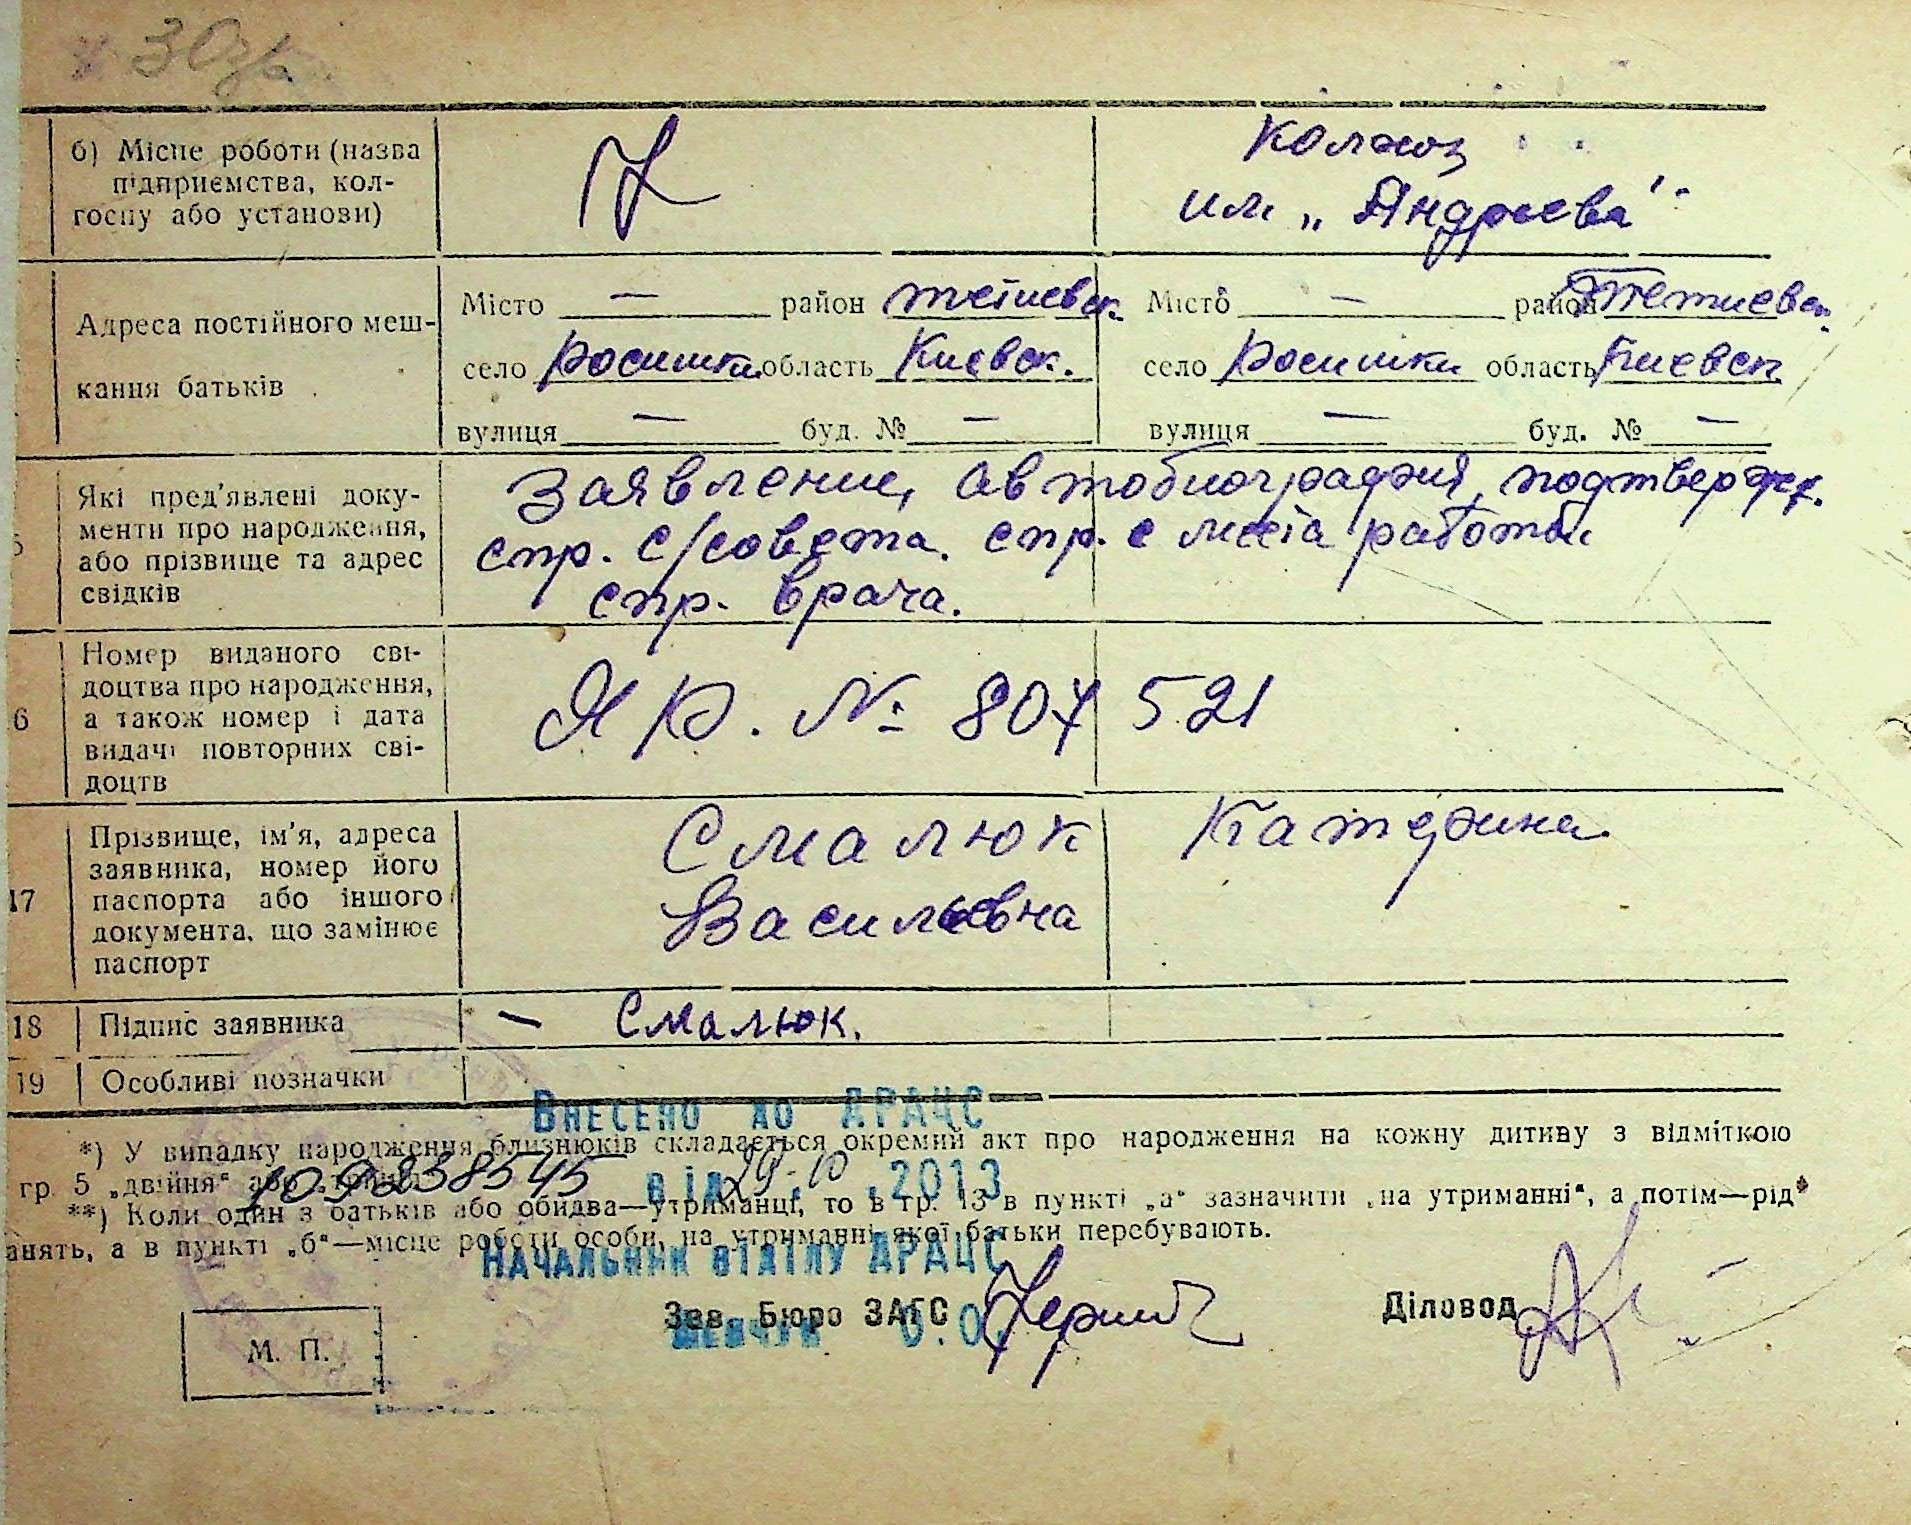 30
б) Місце роботи (назва
підприємства, кол-
госпу або установи)
колхоз
им „Андреева"
Адреса постійного меш-
кання батьків
Місто — район тетиевск.
село Росишки область Киевск.
вулиця — буд. № —
Місто — район Тетиевск.
село Росишки область Киевск
вулиця — буд. № —
5 Які пред'явлені доку-
менти про народження,
або прізвище та адрес
свідків
Заявление, автобиография, подтвержд.
спр. с/совета. спр. с места работы
спр. врача.
6 Номер виданого сві-
доцтва про народження,
а також номер і дата
видачі повторних сві-
доцтв
ЯР. № 807521
17 Прізвище, ім'я, адреса
заявника, номер його
паспорта або іншого
документа, що замінює
паспорт
Смалюк Катерина
Васильевна
18 Підпис заявника — Смалюк.
19 Особливі позначки
Внесено до ДРАЦС
*) У випадку народження близнюків складається окремий акт про народження на кожну дитину з відміткою
гр. 5 „двійня" або
1092838545 від 29.10.2013
**) Коли один з батьків або обидва—утриманці, то в гр. 13 в пункті „а" зазначити „на утриманні", а потім—рід
анять, а в пункті „б"—місце роботи особи, на утриманні якої батьки перебувають.
Начальник відділу ДРАЦС
Зав. Бюро ЗАГС
Шевчук О.О.
Діловод
М. П.